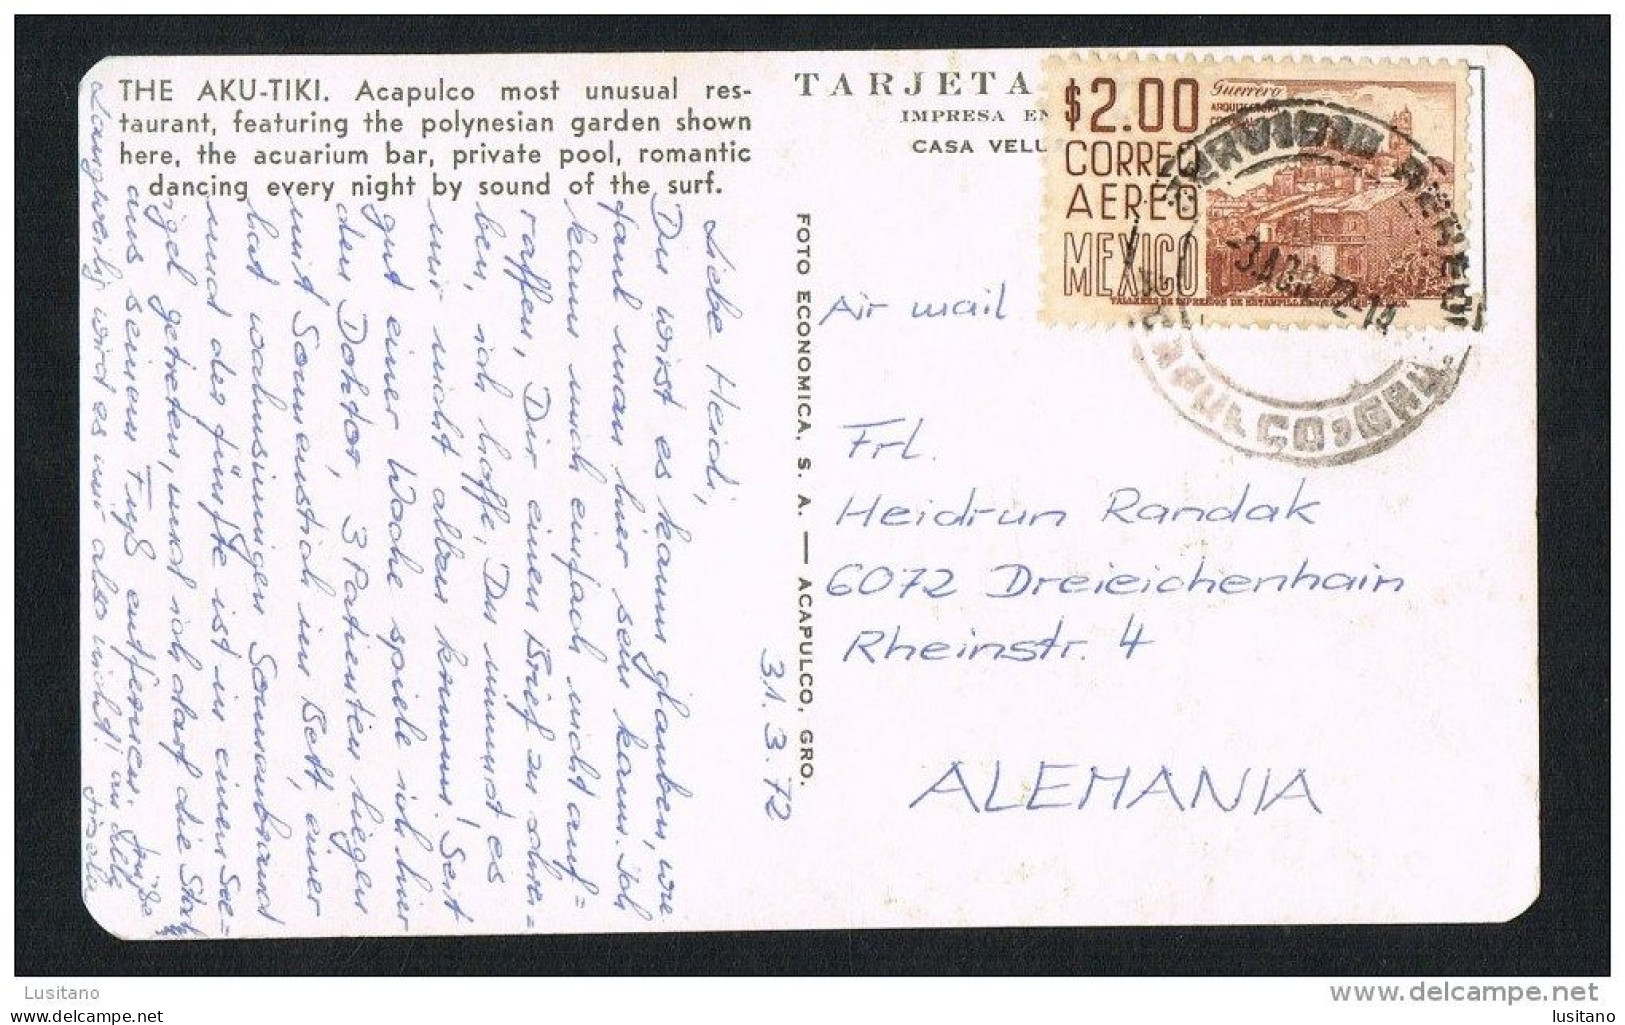 THE AKU-TIKI. Acapulco most unusual res-
taurant, featuring the polynesian garden shown
here, the acuarium bar, private pool, romantic
dancing every night by sound of the surf.
Liebe Heidi,
Du wirst es kaum glauben, wie
faul man hier sein kann. Ich
kann mich einfach nicht auf=
raffen, Dir einen Brief zu schrei=
ben, ich hoffe, Du nimmst es
mir nicht albern krumm! Seit
gut einer Woche spiele ich hier
den Doktor, 3 Patienten liegen
mit Sonnenstich im Bett, einer
hat wahnsinnigen Sonnenbrand
und der fünfte ist in einen See=
igel getreten, und ich darf die
aus seinem Fuß entfernen.
Langweilig wird es mir also nicht!
Grüße
an alle
31.3.72
FOTO ECONOMICA, S. A. — ACAPULCO, GRO.
TARJETA
IMPRESA EN
CASA VELU
$2.00
CORREO
AEREO
MEXICO
Guerrero
ARQUITECTURA
TALLERES DE IMPRESION DE ESTAMPILLAS
SERVICIO AEREO
-3.AGO.72-14
ACAPULCO, GRO.
Air mail
Frl.
Heidrun Randak
6072 Dreieichenhain
Rheinstr. 4
ALEMANIA
Lusitano
www.delcampe.net
lusitano
lusitano